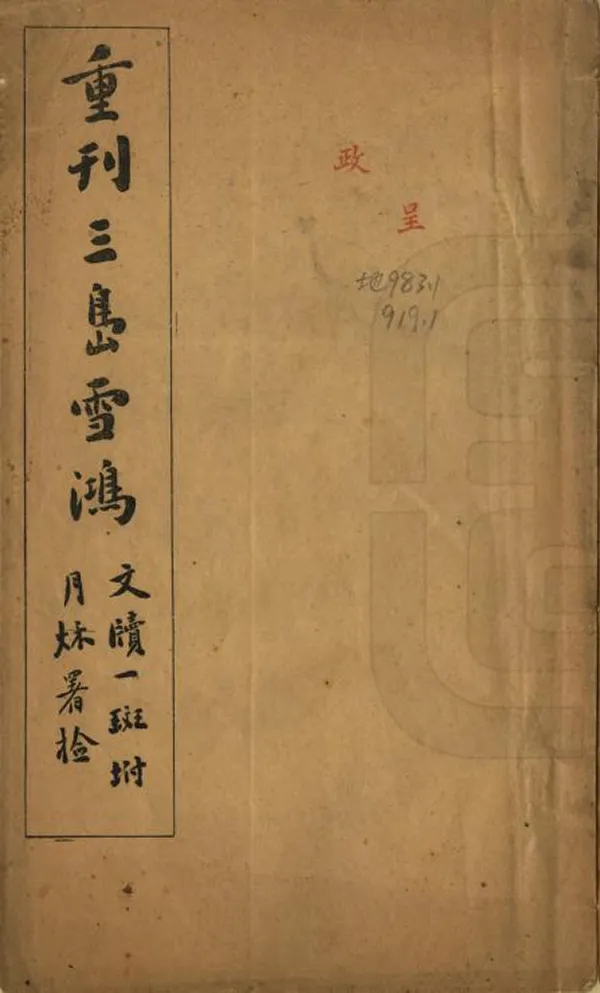 重刊三島雪鴻
文牘一斑坿
月秌署检
呈
政
地983.1
919.1